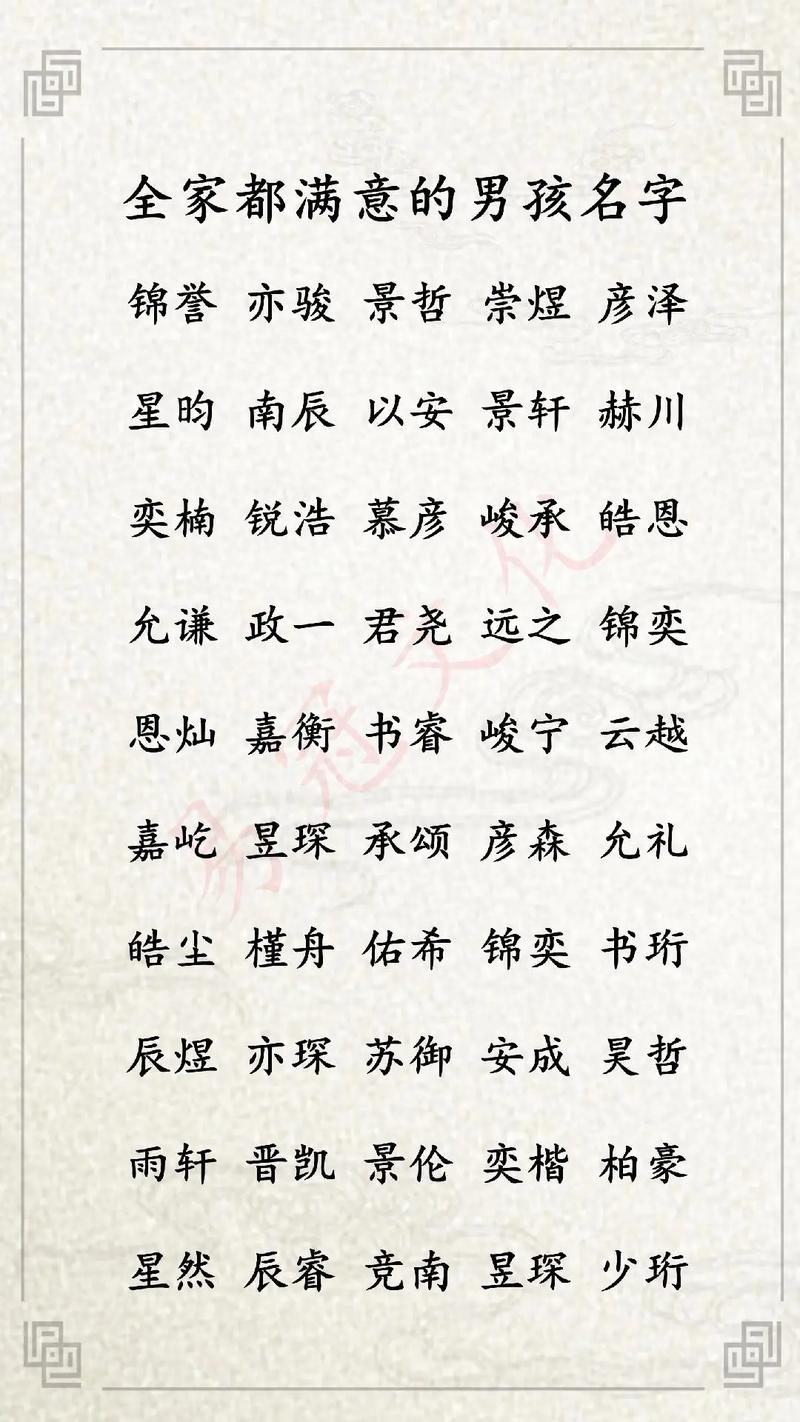 全家都满意的男孩名字
锦誉 亦骏 景哲 崇煜 彦泽
星昀 南辰 以安 景轩 赫川
奕楠 锐浩 慕彦 峻承 皓恩
允谦 政一 君尧 远之 锦奕
恩灿 嘉衡 书睿 峻宁 云越
嘉屹 昱琛 承颂 彦森 允礼
皓尘 槿舟 佑希 锦奕 书珩
辰煜 亦琛 苏御 安成 昊哲
雨轩 晋凯 景伦 奕楷 柏豪
星然 辰睿 竞南 昱琛 少珩
易冠文化